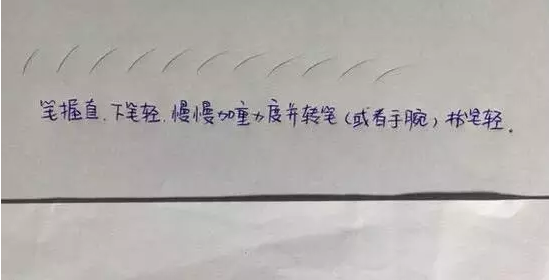 笔握直.下笔轻.慢慢加重力度并转笔(或者手腕)抬笔轻.